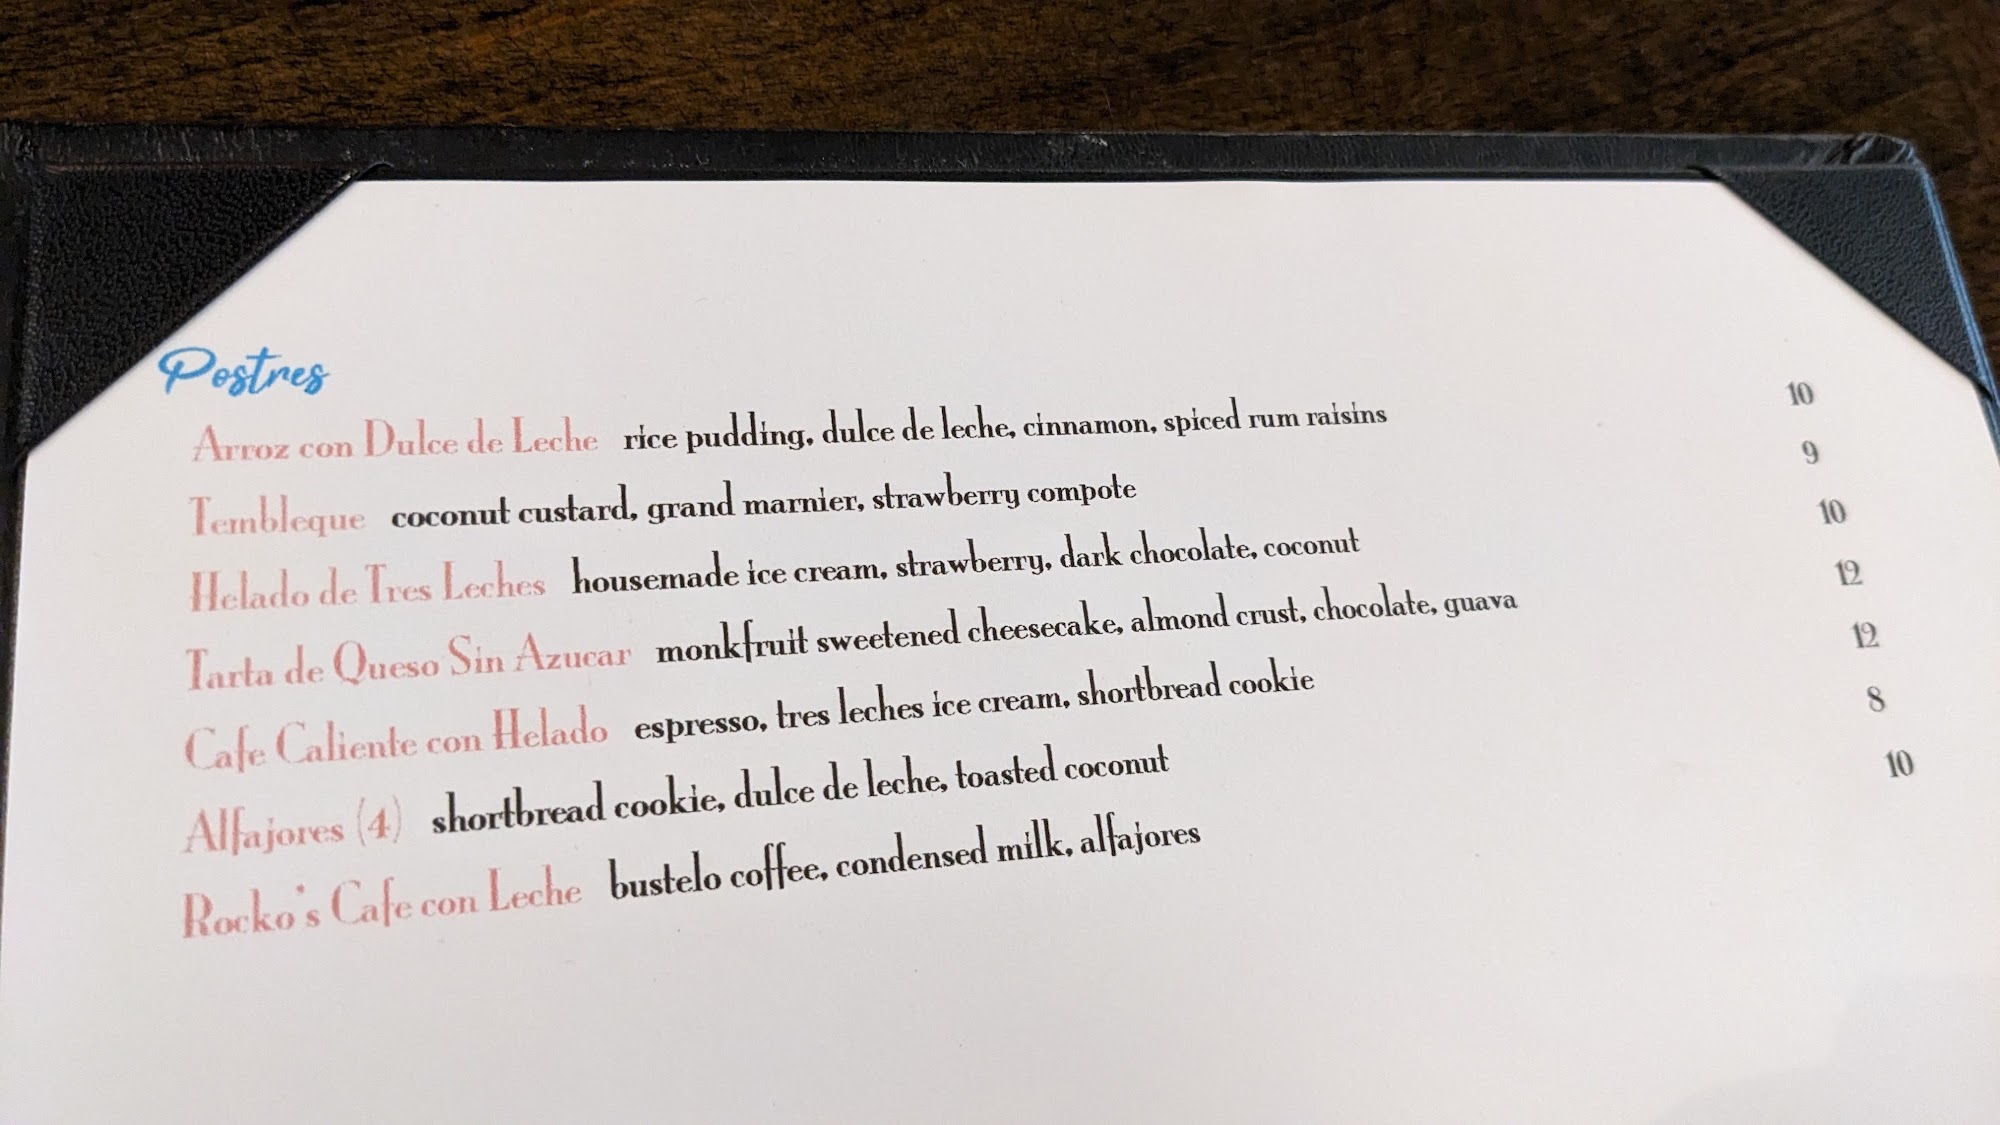 Postres
Arroz con Dulce de Leche rice pudding, dulce de leche, cinnamon, spiced rum raisins 10
Tembleque coconut custard, grand marnier, strawberry compote 9
Helado de Tres Leches housemade ice cream, strawberry, dark chocolate, coconut 10
Tarta de Queso Sin Azucar monkfruit sweetened cheesecake, almond crust, chocolate, guava 12
Cafe Caliente con Helado espresso, tres leches ice cream, shortbread cookie 12
Alfajores (4) shortbread cookie, dulce de leche, toasted coconut 8
Rocko's Cafe con Leche bustelo coffee, condensed milk, alfajores 10